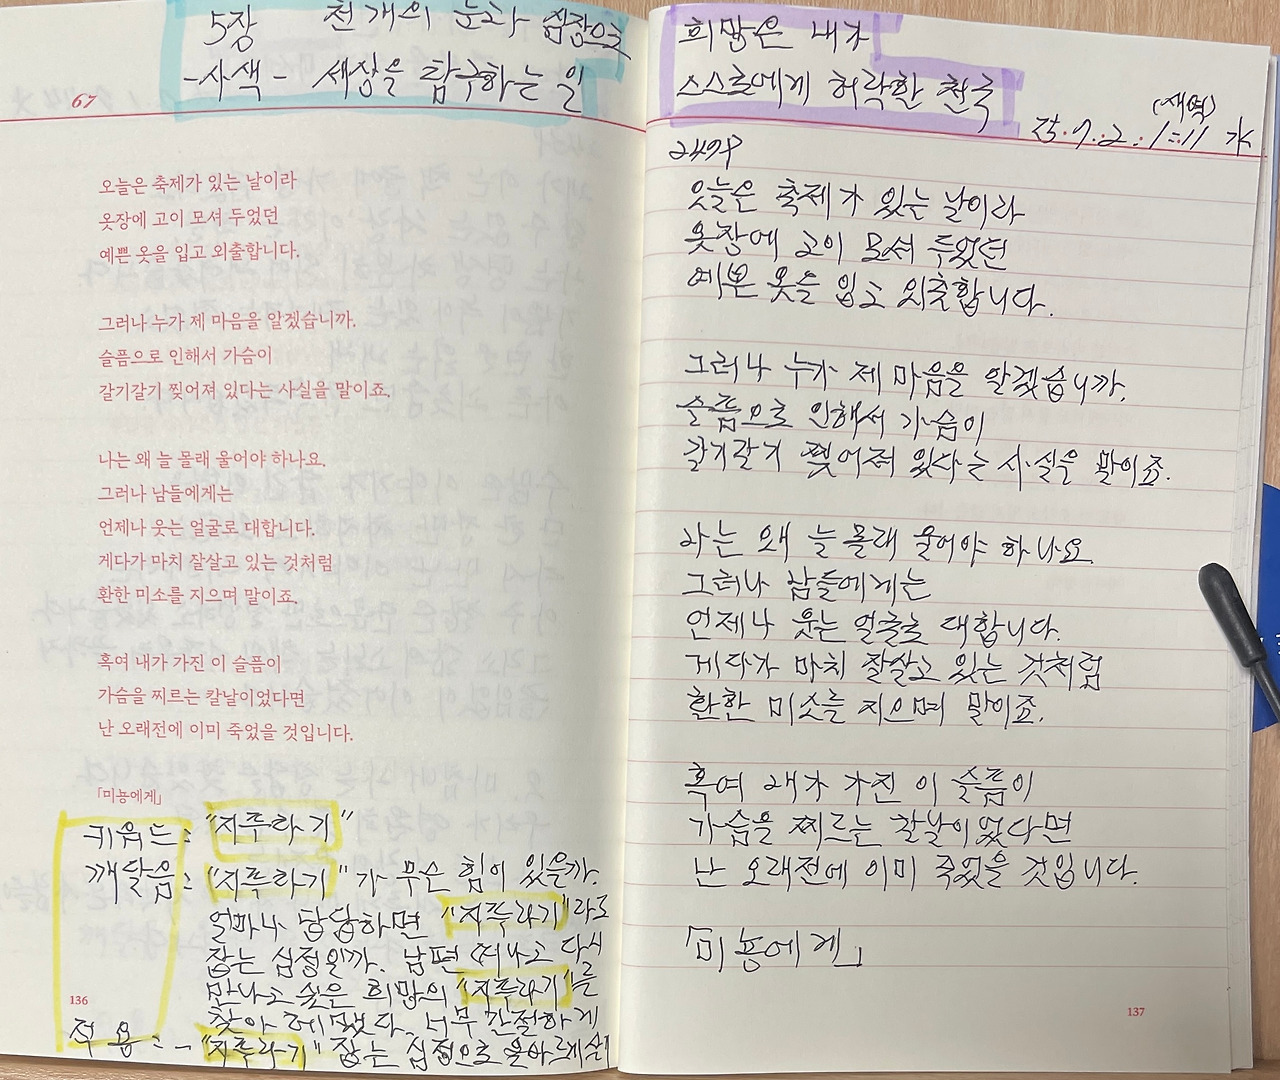 5장 천 개의 눈과 심장으로
-사색- 세상을 탐구하는 일
67
오늘은 축제가 있는 날이라
옷장에 고이 모셔 두었던
예쁜 옷을 입고 외출합니다.
그러나 누가 제 마음을 알겠습니까.
슬픔으로 인해서 가슴이
갈기갈기 찢어져 있다는 사실을 말이죠.
나는 왜 늘 몰래 울어야 하나요.
그러나 남들에게는
언제나 웃는 얼굴로 대합니다.
게다가 마치 잘살고 있는 것처럼
환한 미소를 지으며 말이죠.
혹여 내가 가진 이 슬픔이
가슴을 찌르는 칼날이었다면
난 오래전에 이미 죽었을 것입니다.
「미뇽에게」
키워드 : "지푸라기"
깨달음 : "지푸라기"가 무슨 힘이 있을까.
얼마나 답답하면 "지푸라기"라도
잡는 심정일까. 남편 떠나고 다시
만나고 싶은 희망의 "지푸라기"를
찾아 헤맸다. 너무 간절하게
적용 : - "지푸라기" 잡는 심정으로 올바르게 살기
136
희망은 내가
스스로에게 허락한 천국
(새벽)
25. 7. 2. 1:11 水
오늘은 축제가 있는 날이라
옷장에 고이 모셔 두었던
예쁜 옷을 입고 외출합니다.
그러나 누가 제 마음을 알겠습니까.
슬픔으로 인해서 가슴이
갈기갈기 찢어져 있다는 사실을 말이죠.
나는 왜 늘 몰래 울어야 하나요
그러나 남들에게는
언제나 웃는 얼굴로 대합니다.
게다가 마치 잘살고 있는 것처럼
환한 미소를 지으며 말이죠.
혹여 내가 가진 이 슬픔이
가슴을 찌르는 칼날이었다면
난 오래전에 이미 죽었을 것입니다.
「미뇽에게」
137